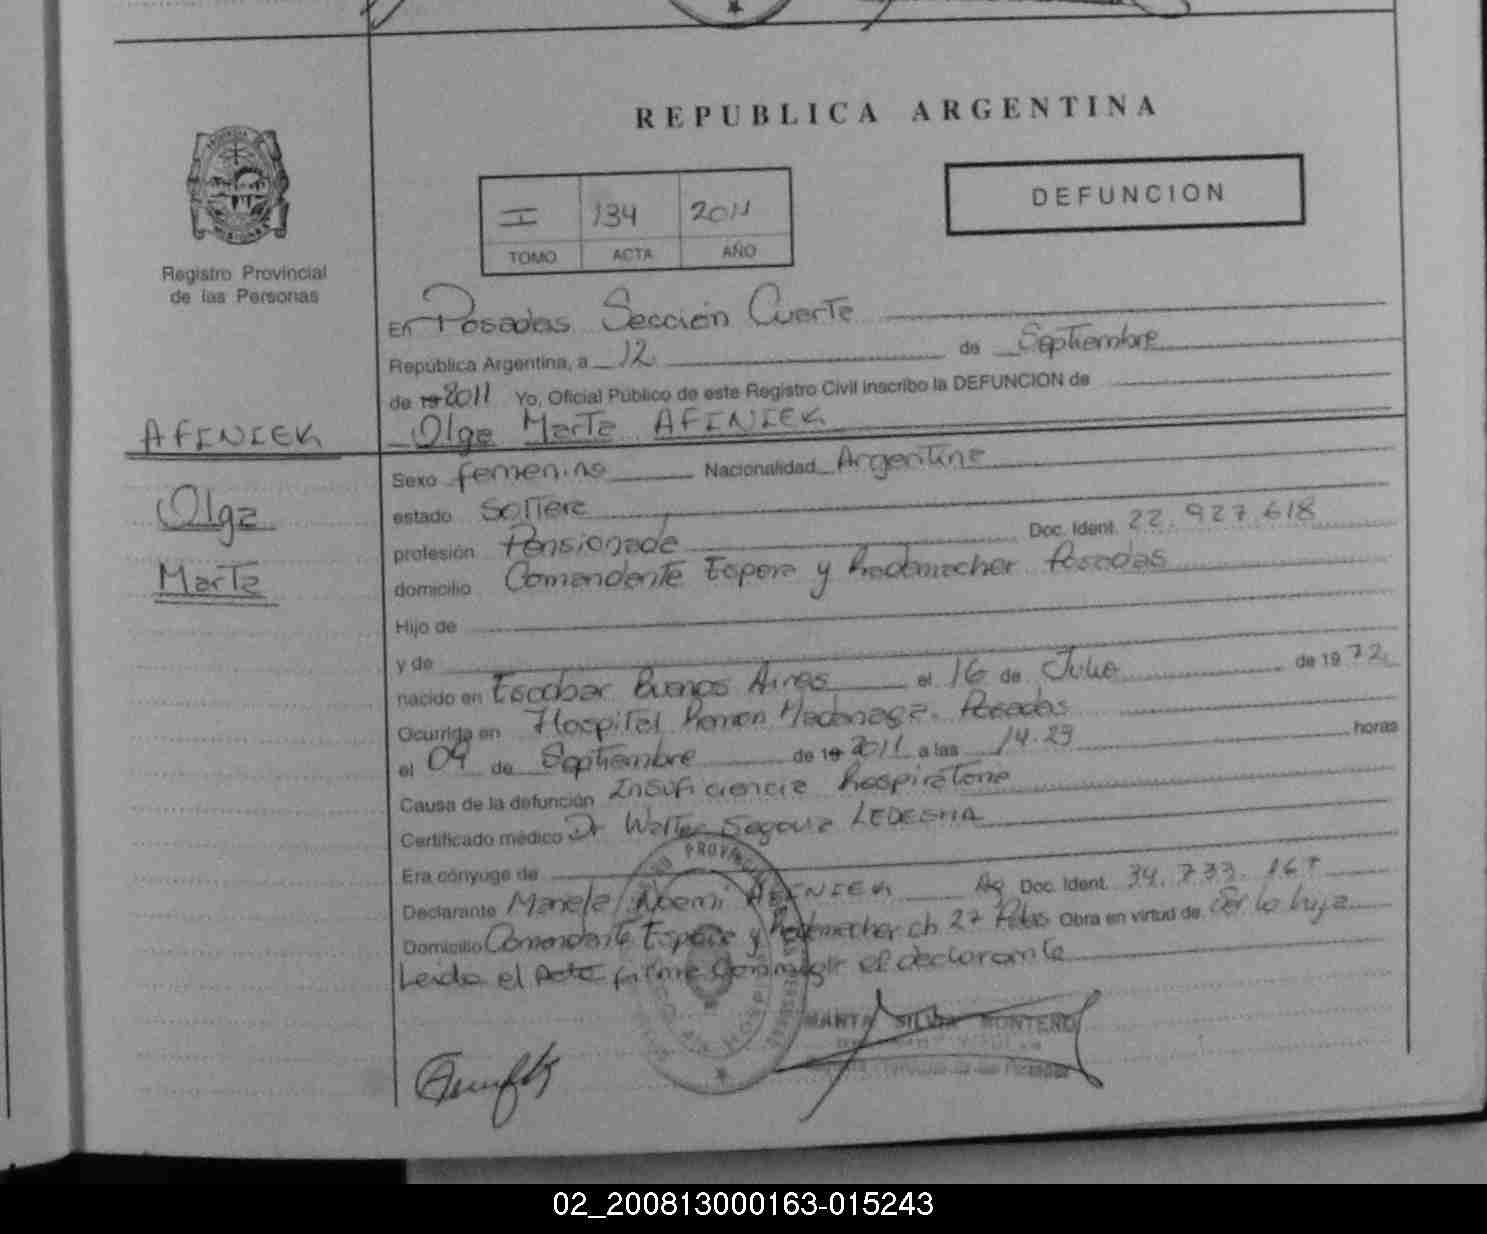 REPUBLICA ARGENTINA
I 134 2011
TOMO ACTA AÑO
DEFUNCION
Registro Provincial
de las Personas
En Posadas Sección Cuarta
República Argentina, a 12 de Septiembre
de 19 2011 Yo, Oficial Público de este Registro Civil inscribo la DEFUNCION de
Olga Marta AFINIEK
AFINIEK
Olga
Marta
Sexo femenino Nacionalidad Argentina
estado soltera
profesión Pensionada Doc. Ident. 22.927.618
domicilio Comandante Espora y Rademacher Posadas
Hijo de
y de
nacido en Escobar Buenos Aires el 16 de Julio de 1972
Ocurrida en Hospital Ramon Madariaga. Posadas
el 09 de Septiembre de 19 2011 a las 14.23 horas
Causa de la defunción Insuficiencia Respiratoria
Certificado médico Dr Walter Segovia LEDESMA
Era cónyuge de
Declarante Mariela Noemi AFINIEK Doc. Ident. 34.733.167
Domicilio Comandante Espora y Rademacher ch 27 Pdas Obra en virtud de Ser la hija
Leida el Acta firma conmigo el declarante
MARTA SILVIA MONTERO
02_200813000163-015243